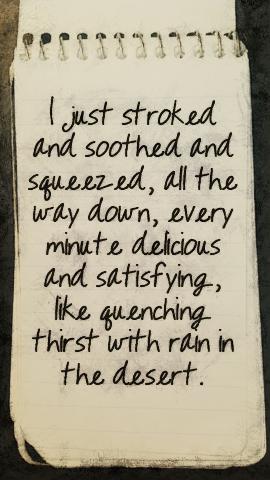 I just stroked
and soothed and
squeezed, all the
way down, every
minute delicious
and satisfying,
like quenching
thirst with rain in
the desert.